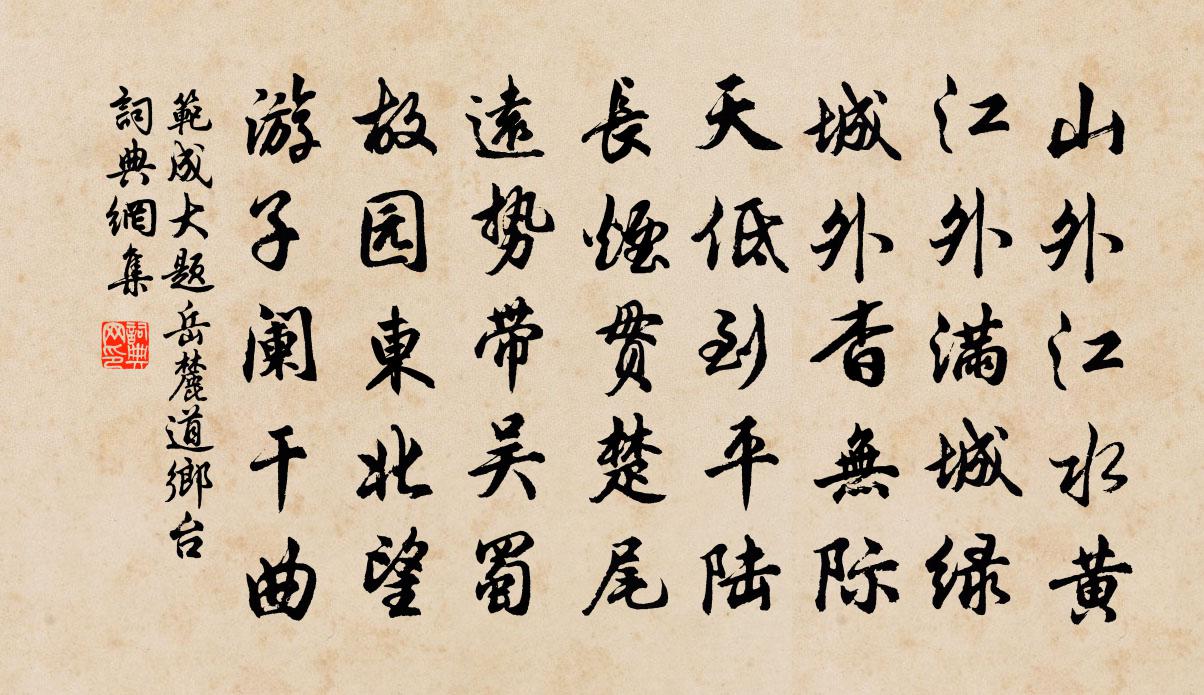 山外江水黄
江外满城绿
城外杳無际
天低到平陆
長煙贯楚尾
遠势带吴蜀
故园東北望
游子阑干曲
範成大题岳麓道鄉台
詞典網集
詞典网印